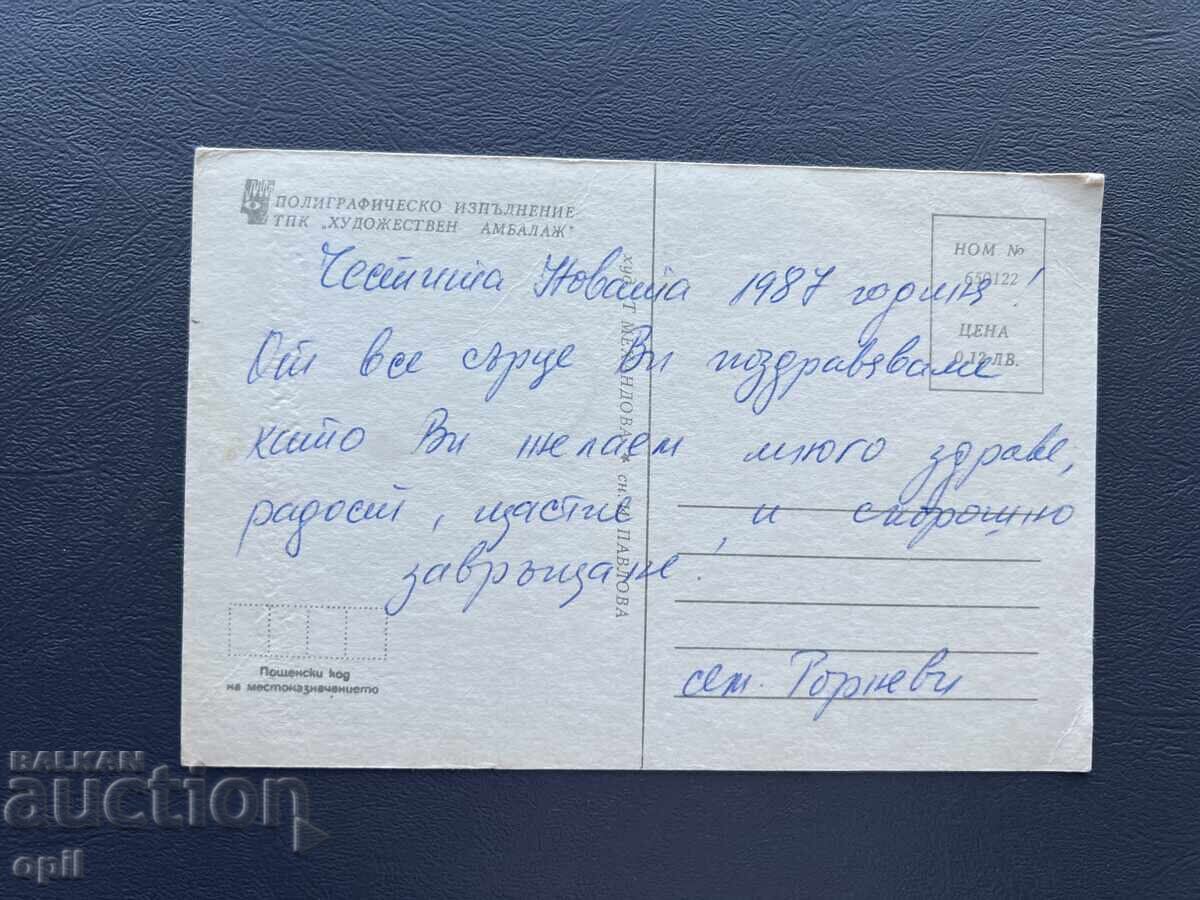 ПОЛИГРАФИЧЕСКО ИЗПЪЛНЕНИЕ
ТПК „ХУДОЖЕСТВЕН АМБАЛАЖ"
НОМ №
650122
ЦЕНА
0,12 ЛВ.
Честита Новата 1987 година!
От все сърце Ви поздравяваме
като Ви желаем много здраве,
радост, щастие и скорошно
завръщане!
сем.
ПАВЛОВА
Пощенски код
на местоназначението
BALKAN
auction
opil